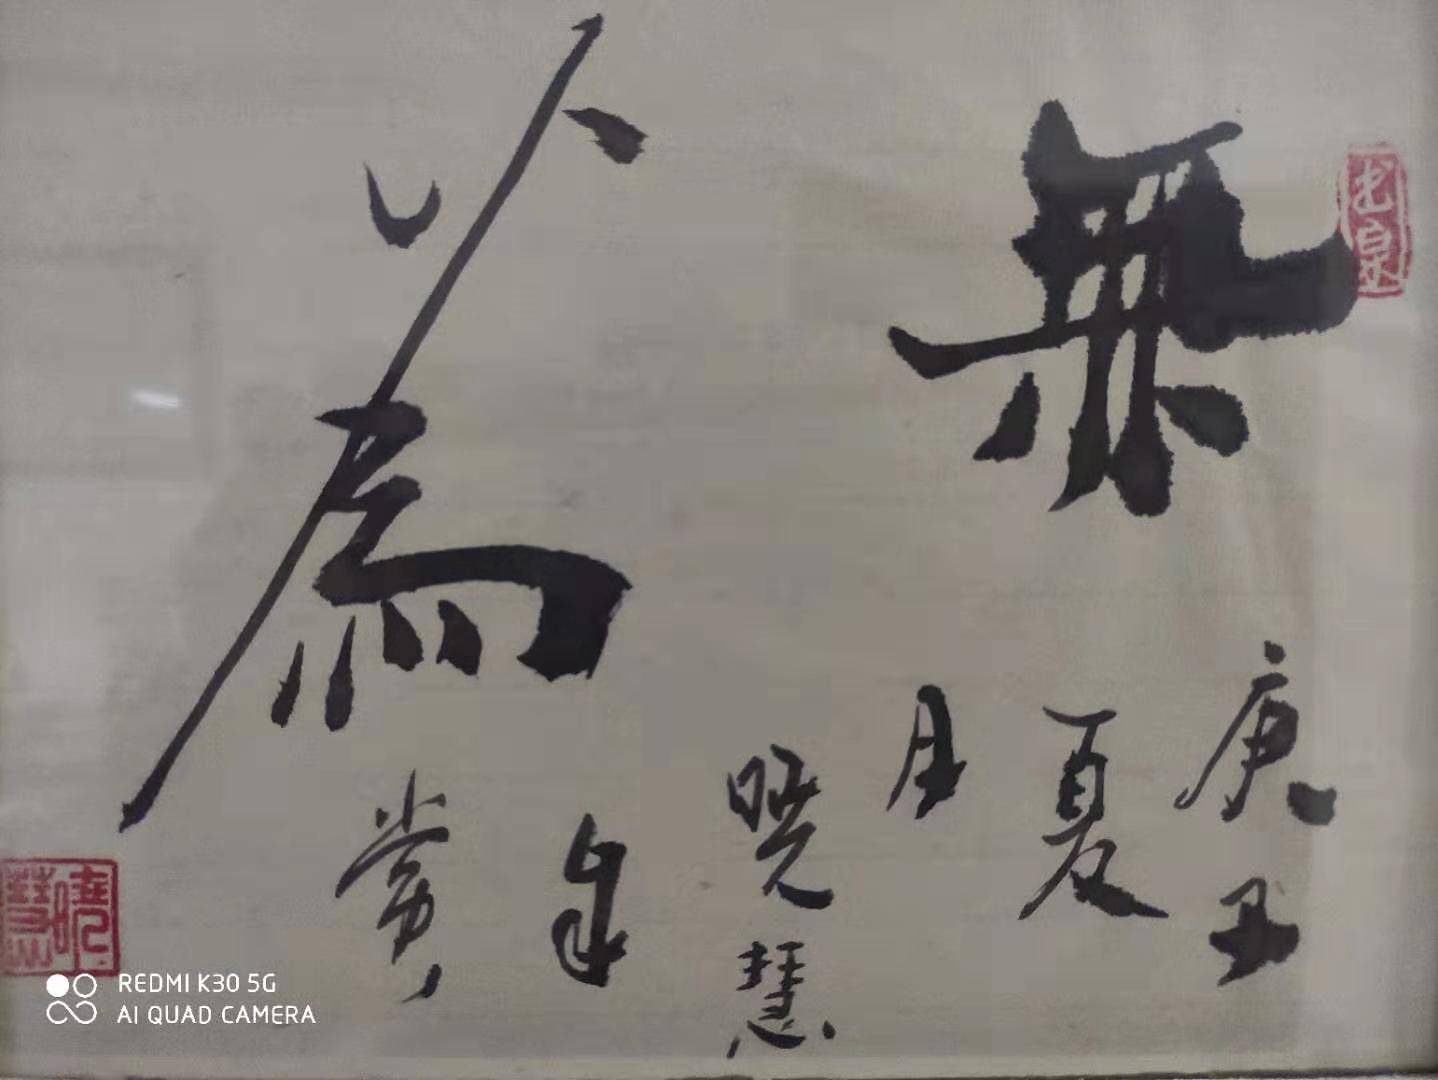 無為
庚
夏
月
晓慧
自
赏
曉慧
REDMI K30 5G
AI QUAD CAMERA